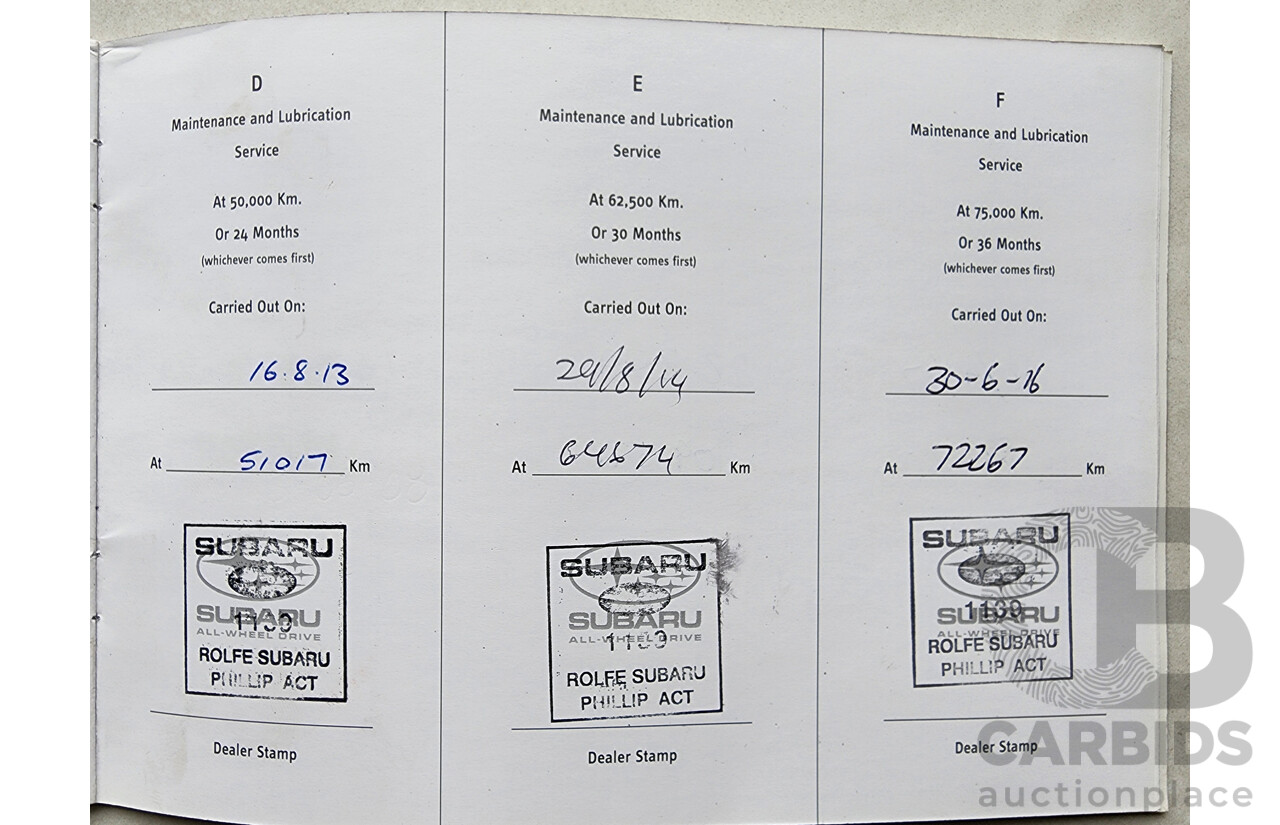 D
Maintenance and Lubrication
Service
At 50,000 Km.
Or 24 Months
(whichever comes first)
Carried Out On:
16.8.13
At 51017 Km
SUBARU
SUBARU
ALL-WHEEL DRIVE
ROLFE SUBARU
PHILLIP ACT
Dealer Stamp
E
Maintenance and Lubrication
Service
At 62,500 Km.
Or 30 Months
(whichever comes first)
Carried Out On:
29/8/14
At Km
SUBARU
SUBARU
ALL-WHEEL DRIVE
ROLFE SUBARU
PHILLIP ACT
Dealer Stamp
F
Maintenance and Lubrication
Service
At 75,000 Km.
Or 36 Months
(whichever comes first)
Carried Out On:
30-6-16
At 72267 Km
SUBARU
1139
SUBARU
ALL-WHEEL DRIVE
ROLFE SUBARU
PHILLIP ACT
Dealer Stamp
CARBIDS
auctionplace